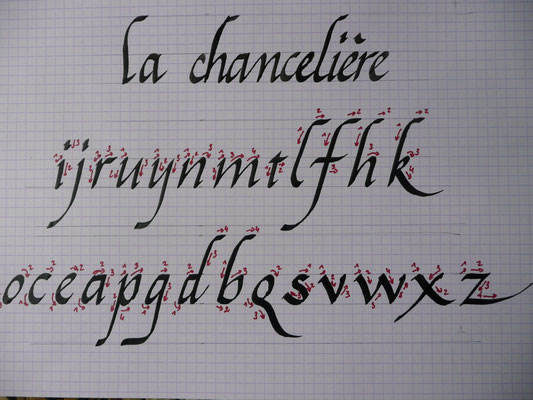 la chancelière
i j r u y n m t l f h k
o c e a p g d b q s v w x z